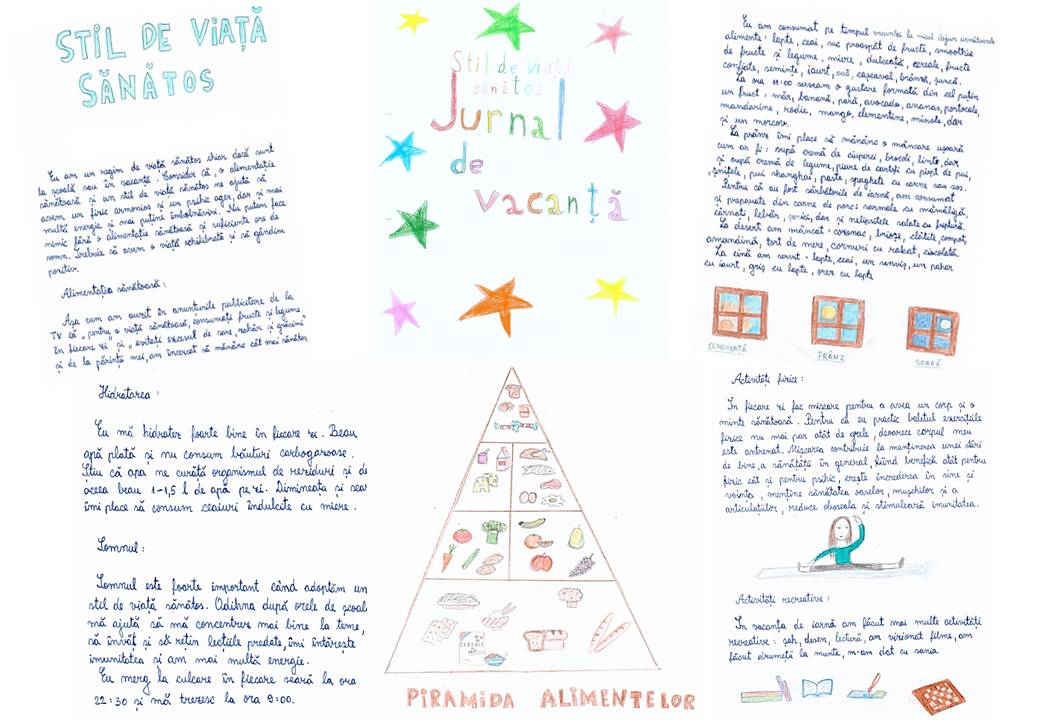 STIL DE VIAȚĂ
SĂNĂTOS
Eu am un regim de viață sănătos chiar dacă sunt
la școală sau în vacanță. Consider că, o alimentație
sănătoasă și un stil de viață sănătos ne ajută să
avem un fizic armonios și un psihic ager, dar și mai
multă energie și mai puține îmbolnăviri. Nu putem face
nimic fără o alimentație sănătoasă și suficiente ore de
somn. Trebuie să avem o viață echilibrată și să gândim
pozitiv.
Alimentația sănătoasă:
Așa cum am auzit în anunțurile publicitare de la
TV că „pentru o viață sănătoasă, consumați fructe și legume
în fiecare zi" și „evitați excesul de sare, zahăr și grăsimi"
și de la părinții mei, am încercat să mănânc cât mai sănătos
Stil de viață
sănătos
Jurnal
de
vacanță
Eu am consumat pe timpul vacanței la micul dejun următoarele
alimente: lapte, ceai, suc proaspăt de fructe, smoothie
de fructe și legume, miere, dulceață, cereale, fructe
confiate, semințe, iaurt, ouă, cașcaval, brânză, șuncă.
La ora 11:00 serveam o gustare formată din cel puțin
un fruct: măr, banană, pară, avocado, ananas, portocale,
mandarine, rodie, mango, clementine, minole, dar
și un morcov.
La prânz îmi place să mănânc o mâncare ușoară
cum ar fi: supă cremă de ciuperci, brocoli, linte, dar
și supă cremă de legume, piure de cartofi cu piept de pui,
șnițele, pui shanghai, paste, spaghete cu carne sau sos.
Pentru că au fost sărbătorile de iarnă, am consumat
și preparate din carne de porc: sarmale cu mămăligă,
cârnați, lebăr, șorici, dar și nelipsitele salate cu friptură.
La desert am mâncat: cozonac, brioșe, clătite, compot,
amandină, tort de mere, cornuri cu rahat, ciocolată.
La cină am servit: lapte, ceai, un senviș, un pahar
cu iaurt, griș cu lapte, orez cu lapte
DIMINEAȚĂ
PRÂNZ
SEARĂ
Hidratarea:
Eu mă hidratez foarte bine în fiecare zi. Beau
apă plată și nu consum băuturi carbogazoase.
Știu că apa ne curăță organismul de reziduri și de
aceea beau 1-1,5 l de apă pe zi. Dimineața și sear
îmi place să consum ceaiuri îndulcite cu miere.
Somnul:
Somnul este foarte important când adoptăm un
stil de viață sănătos. Odihna după orele de școal
mă ajută să mă concentrez mai bine la teme,
să învăț și să rețin lecțiile predate, îmi întărește
imunitatea și am mai multă energie.
Eu merg la culcare în fiecare seară la ora
22:30 și mă trezesc la ora 9:00.
PIRAMIDA ALIMENTELOR
Activități fizice:
În fiecare zi fac mișcare pentru a avea un corp și o
minte sănătoasă. Pentru că eu practic baletul exercițiile
fizice nu mai par atât de grele, deoarece corpul meu
este antrenat. Mișcarea contribuie la menținerea unei stări
de bine, a sănătății în general, fiind benefică atât pentru
fizic cât și pentru psihic, crește încrederea în sine și
voința, menține sănătatea oaselor, mușchilor și a
articulațiilor, reduce oboseala și stimulează imunitatea.
Activități recreative:
În vacanța de iarnă am făcut mai multe activități
recreative: șah, desen, lectură, am vizionat filme, am
făcut drumeții la munte, m-am dat cu sania.